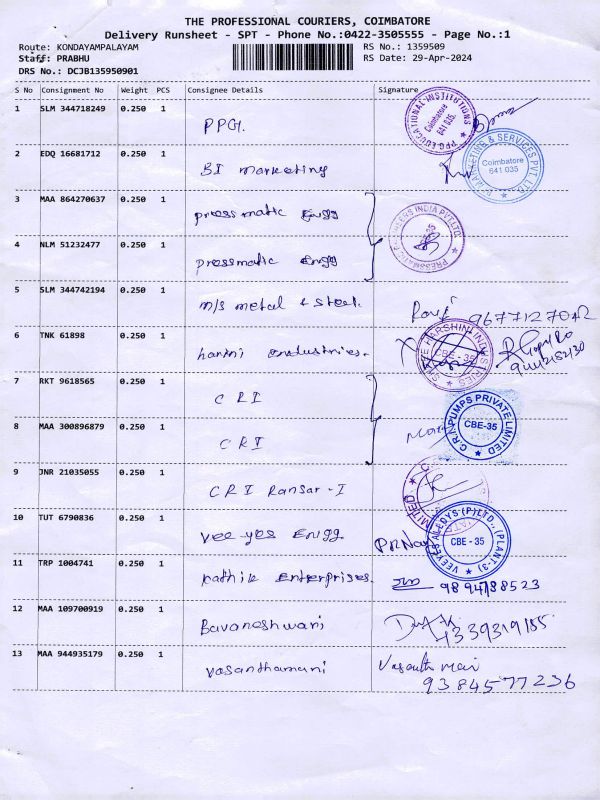 THE PROFESSIONAL COURIERS, COIMBATORE
Delivery Runsheet - SPT - Phone No.:0422-3505555 - Page No.:1
Route: KONDAYAMPALAYAM RS No.: 1359509
Staff: PRABHU RS Date: 29-Apr-2024
DRS No.: DCJB135950901
S No Consignment No Weight PCS Consignee Details Signature
1 SLM 344718249 0.250 1 PPG. PPG EDUCATIONAL INSTITUTIONS Coimbatore 641 035.
2 EDQ 16681712 0.250 1 BI marketing MARKETING & SERVICES PVT. LTD. Coimbatore 641 035
3 MAA 864270637 0.250 1 pressmatic Engg
4 NLM 51232477 0.250 1 pressmatic Engg PRESSMATIC ENGINEERS INDIA PVT. LTD.
5 SLM 344742194 0.250 1 m/s metal & steel. Ravi 9677127042
6 TNK 61898 0.250 1 harini industries. SREE HARSHINI INDUSTRIES CBE - 35
7 RKT 9618565 1 0.250 CRI
8 MAA 300896879 0.250 1 CRI C.R.I. PUMPS PRIVATE LIMITED CBE-35
9 JNR 21035055 0.250 1 CRI Ransar - I
10 TUT 6790836 0.250 1 vee yes Engg. VEEYES ALLOYS (P) LTD., (PLANT-3) CBE - 35
11 TRP 1004741 0.250 1 kathik Enterprises.
12 MAA 109700919 0.250 1 Bavaneshwari
13 MAA 944935179 0.250 1 vasanthamani Vasantha Mani
9384577236